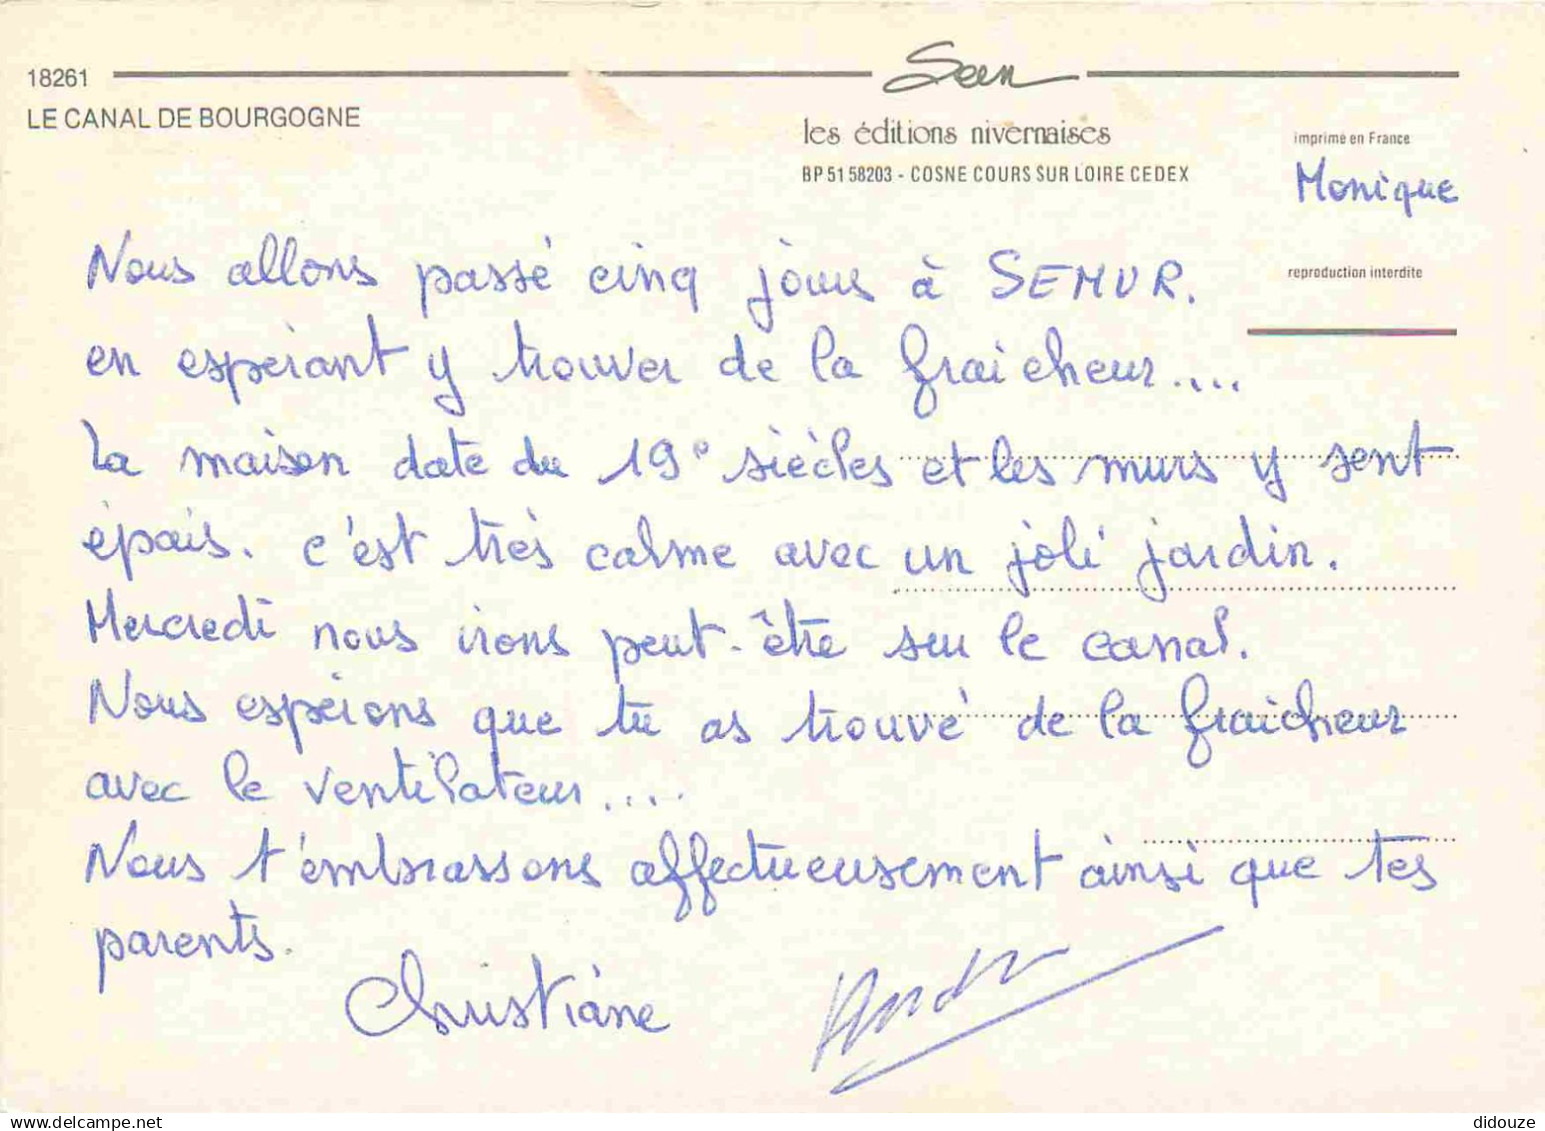 18261
Seen
LE CANAL DE BOURGOGNE
les éditions nivernaises
BP 51 58203 - COSNE COURS SUR LOIRE CEDEX
imprimé en France
Monique
reproduction interdite
Nous allons passé cinq jours à SEMUR.
en espérant y trouver de la fraicheur....
La maison date du 19e siècles et les murs y sent
épais. c'est très calme avec un joli jardin.
Mercredi nous irons peut-être sur le canal.
Nous espérons que tu as trouvé de la fraicheur
avec le ventilateur....
Nous t'embrassons affectueusement ainsi que tes
parents.
Christiane
didouze